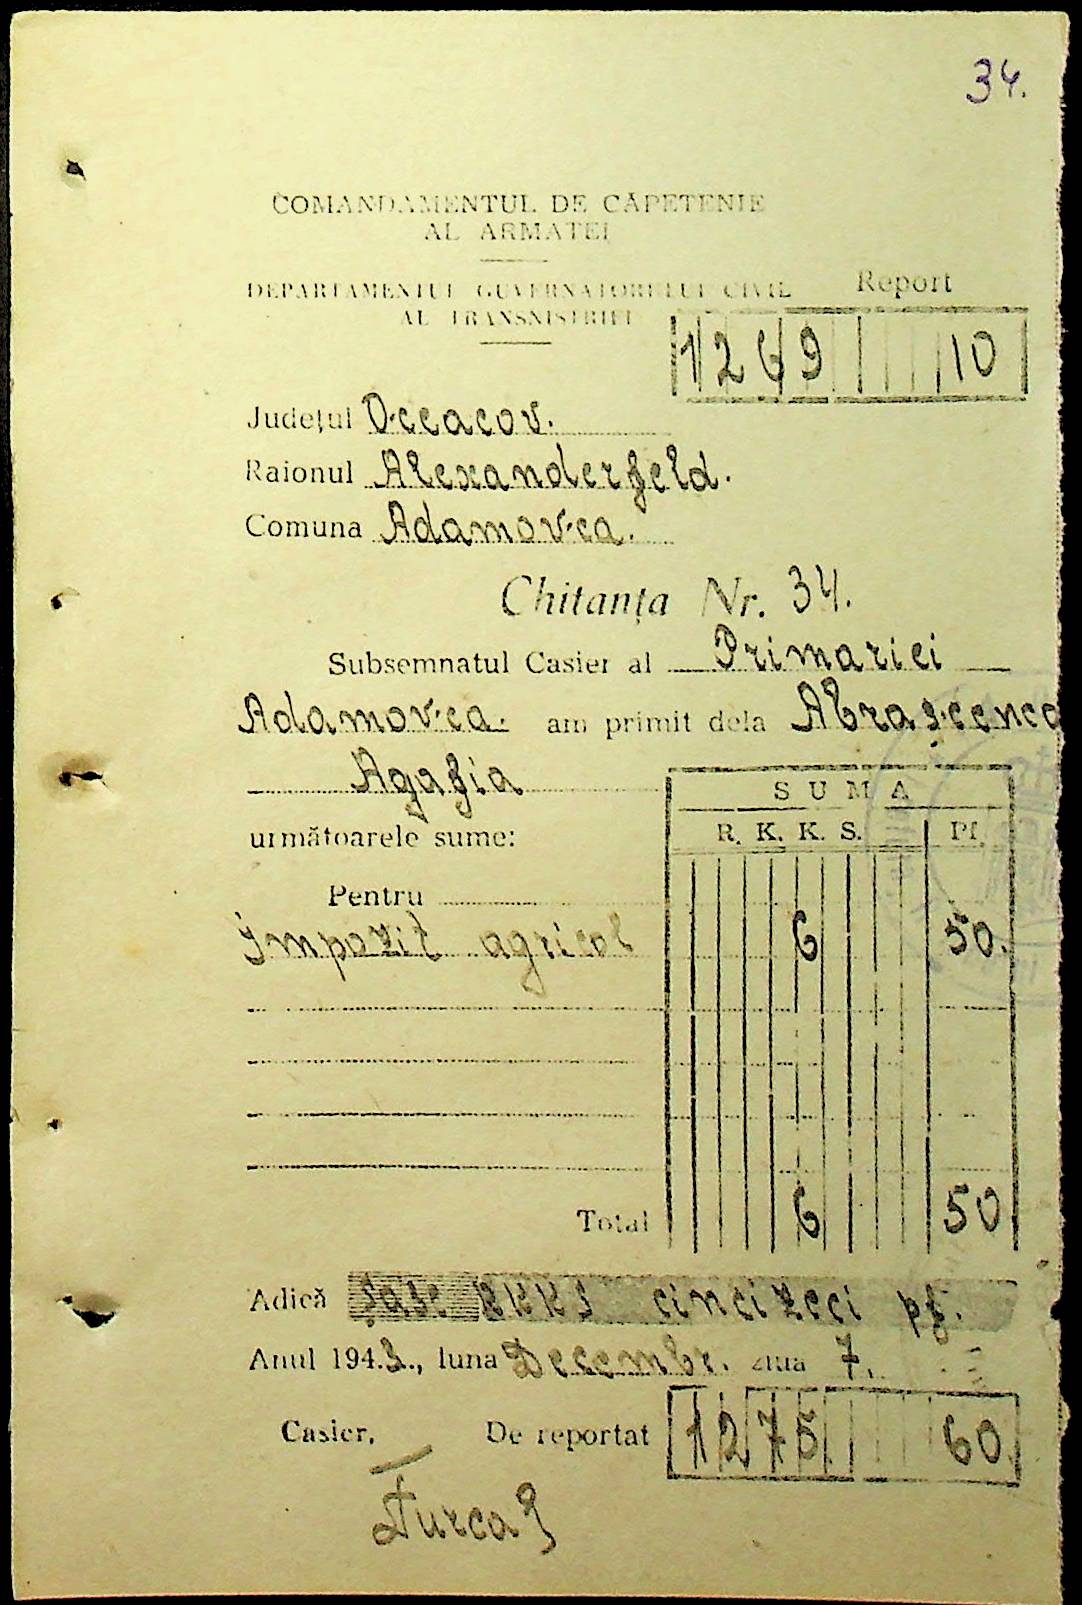 34.
COMANDAMENTUL DE CĂPETENIE
AL ARMATEI
DEPARTAMENTUL GUVERNATORULUI CIVIL
AL TRANSNISTRIEI
Report
1269 10
Județul Occacov.
Raionul Alexanderfeld.
Comuna Adamovca.
Chitanța Nr. 34.
Subsemnatul Casier al Primariei
Adamovca. am primit dela
Agafia
următoarele sume:
SUMA
R. K. K. S. Pf.
Pentru
Impozit agricol 6 50.
Total 6 50
Adică șase RKKS cincizeci pf.
Anul 1943., luna Decembr. ziua 7.
Casier, De reportat 1275 60